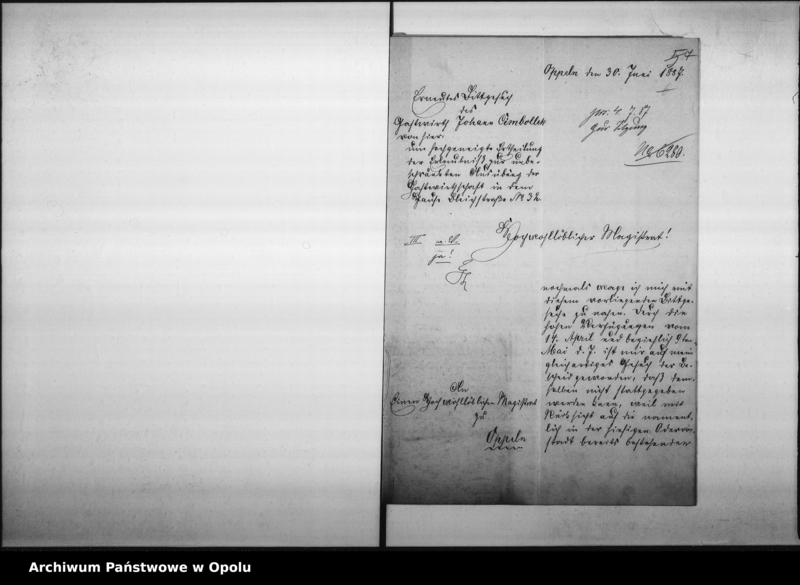 Oppeln den 30. Juni 1887.
Erneutes Bittgesuch
des
Gastwirth Johann Cimbollek
von hier.
um hochgeneigte Ertheilung
der Erlaubniß zur unbe-
schränkten Ausübung der
Gastwirthschaft in dem
Hause Bleichstraße № 32.
pr. 4. 7. 87
zur Sitzung
№ 6280.
III
ja!
Hochwohllöblicher Magistrat!
nochmals wage ich mich mit
diesem vorliegenden Bittge-
suche zu nahen. Durch die
hohen Verfügungen vom
14. April und beziehlich
Mai d. J. ist mir auf mein
gleichartiges Gesuch der Be-
scheid geworden, daß dem-
selben nicht stattgegeben
werden kann, weil mit
Rücksicht auf die nament-
lich in der hiesigen Odervor-
stadt bereits bestehenden
An
Einen Hochwohllöblichen Magistrat
zu
Oppeln
Archiwum Państwowe w Opolu